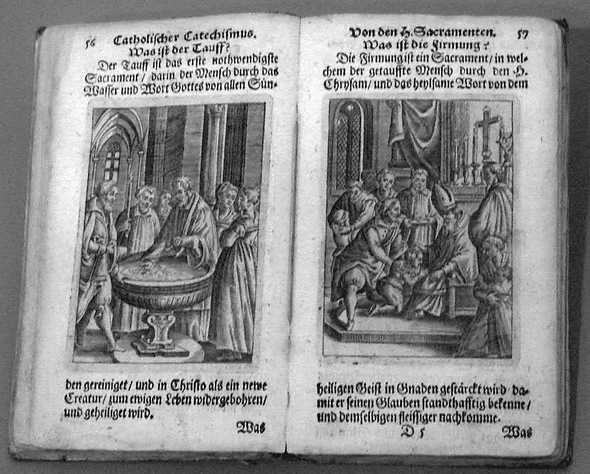 56 Catholischer Catechismus.
Was ist der Tauff?
Der Tauff ist das erste nothwendigste
Sacrament / darin der Mensch durch das
Wasser und Wort Gottes von allen Sün-
den gereiniget / und in Christo als ein newe
Creatur / zum ewigen Leben widergebohren /
und geheiliget wird.
Was
Von den H. Sacramenten. 57
Was ist die Firmung?
Die Firmung ist ein Sacrament / in wel-
chem der getauffte Mensch durch den H.
Chrysam / und das heylsame Wort von dem
heiligen Geist in Gnaden gestärckt wird da-
mit er seinen Glauben standthafftig bekenne /
und demselbigen fleissiger nachkomme.
D 5 Was